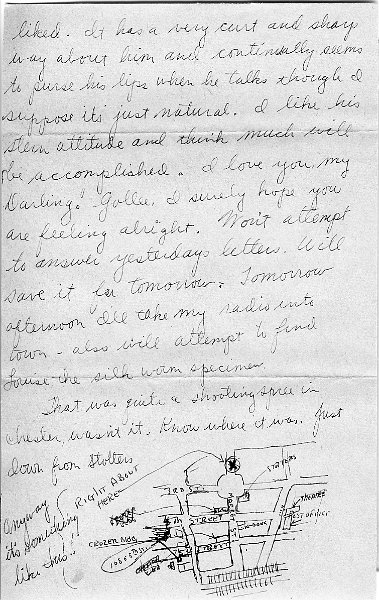 liked. It has a very curt and sharp
way about him and continually seems
to purse his lips when he talks though I
suppose it's just natural. I like his
stern attitude and think much will
be accomplished. I love you, my
Darling! Gollee, I surely hope you
are feeling alright. Won't attempt
to answer yesterdays letters. Will
save it for tomorrow. Tomorrow
afternoon I'll take my radio into
town - also will attempt to find
Louise the silk worm specimen
That was quite a shooting spree in
Chester, wasn't it. Know where it was. Just
down from Stolters
Anyway
it's something
like this!!
RIGHT ABOUT
HERE
3RD ST.
STREET
CROZER
THEATRE
POST OFFICE